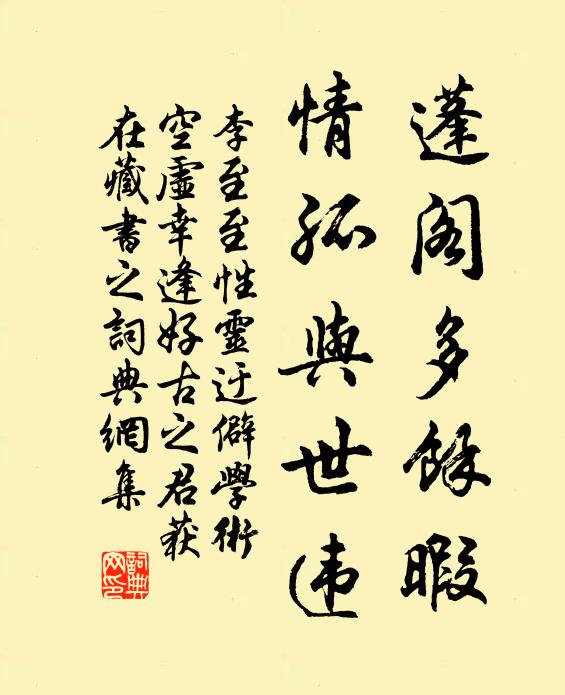 蓬阁多馀暇
情孤與世违
李至至性靈迂僻學術
空虛幸逢好古之君获
在藏書之詞典網集
詞典网印